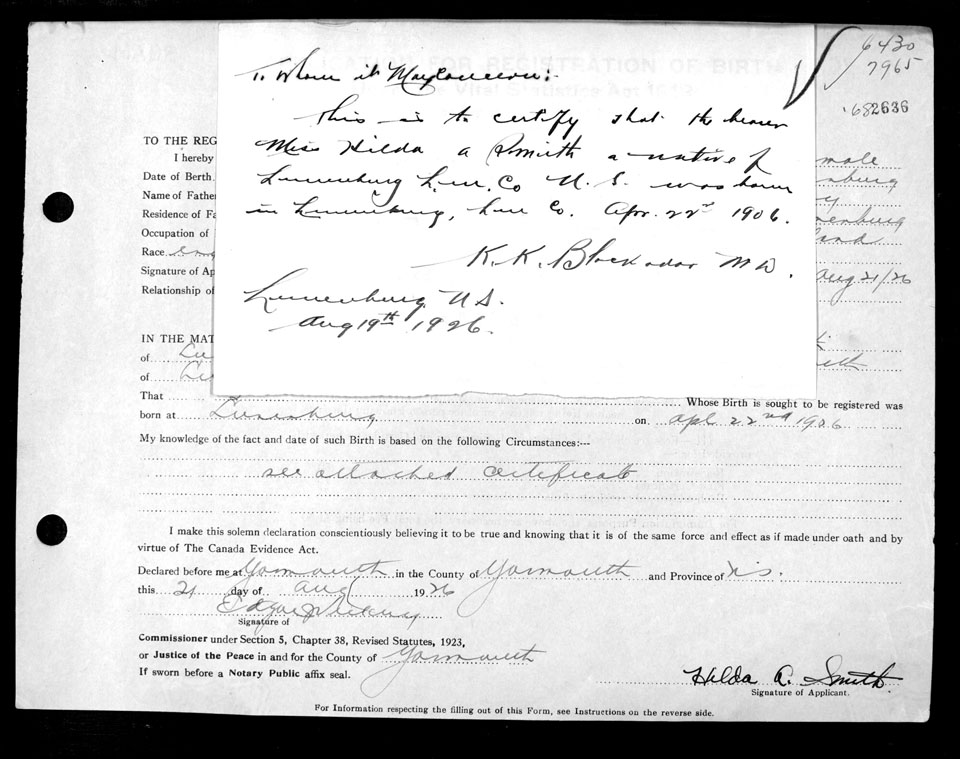 6430
7965
682636
To Whom it May Concern:-
This is to certify that the bearer
Miss Hilda A Smith a native of
Lunenburg Lun. Co N. S. was born
in Lunenburg, Lun Co. Apr. 22nd 1906.
K. K. Blackadar M D.
Lunenburg N S.
Aug 19th 1926.
TO THE REG
I hereby male
Date of Birth
Name of Father
Residence of Fa
Occupation of
Race
Signature of Ap Aug 21/26
Relationship of
IN THE MAT
of Lu
of
That Whose Birth is sought to be registered was
born at Lunenburg on Apl 22nd 1906
My knowledge of the fact and date of such Birth is based on the following Circumstances:--
see attached certificate
I make this solemn declaration conscientiously believing it to be true and knowing that it is of the same force and effect as if made under oath and by
virtue of The Canada Evidence Act.
Declared before me at Yarmouth in the County of Yarmouth and Province of N.S.
this 21 day of Aug 1926
Edgar
Signature of
Commissioner under Section 5, Chapter 38, Revised Statutes, 1923,
or Justice of the Peace in and for the County of Yarmouth
If sworn before a Notary Public affix seal.
Hilda A. Smith
Signature of Applicant.
For Information respecting the filling out of this Form, see Instructions on the reverse side.